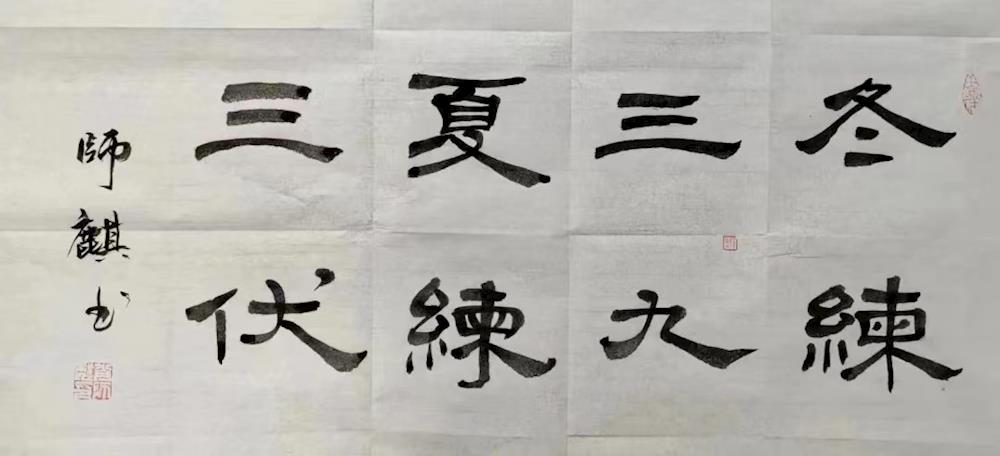 冬練
三九
夏練
三伏
師麒书